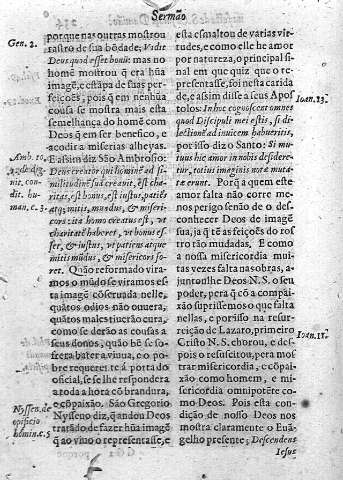 Sermão
Gen. 2.
porque nas outras mostrou
rastro de sua bõdade; Vidit
Deus quod esset bonũ: mas no
homẽ mostrou q̃ era hũa
imagẽ, e estãpa de suas per-
feições, pois q̃ em nenhũa
cousa se mostra mais esta
semelhança do homẽ com
Deos q̃ em ser benefico, e
acodir a miserias alheyas.
Amb. 10.
E assim diz São Ambrosio:
Deus creator qui hominẽ ad si-
nit. con-
militudinẽ suã creavit, est cha-
dit.
ritas, est bonus, est iustus, patiẽs
hu-
atq; mitis, mundus, & miseri-
man. c. 3.
cors: ita homo creatus est, ut
charitatẽ haberet, ut bonus es-
ser, & iustus, ut patiens atque
mitis mũdus, & misericors fo-
ret. Quão reformado vira-
mos o mũdo se viramos es-
ta imagẽ cõservada nelle,
quãtos odios não ouvera,
quãtos males tivera cura,
como se derão as cousas a
seus donos, quão bẽ se so-
frera bater a viuva, e o po-
bre requerer te á porta do
oficial, se se lhe respondera
a toda a hora cõ brandura,
e cõpaixão. São Gregorio
Nyssen. de
Nysseno diz, q̃ andou Deos
opificio
tratãdo de fazer hũa imagẽ
homin. c. 5
q̃ ao vivo o representasse, e
esta esmaltou de varias vir-
tudes, e como elle he amor
por natureza, o principal si-
nal em que quiz que o re-
presentasse, foi nesta carida
de, e assim disse a seus Apos
Ioan. 13.
tolos. In hoc cognoscent omnes
quod Discipuli mei estis, si di-
lectionẽ ad invicem habueritis,
por isso diz o Santo: Si mu-
tuus hic amor in nobis desidere-
tur, totius imaginis nota mutã-
te erunt. Porq̃ a quem este
amor falta não corre me-
nos perigo senão de o des-
conhecer Deos de imagẽ
sua, ja q̃ tẽ as feições do ros-
tro tão mudadas. E como
a nossa misericordia mui-
tas vezes falta nas obras, a-
juntoulhe Deos N. S. o seu
poder, pera q̃ cõ a compai-
xão supprissemos o que falta
nellas, e por isso na resur-
reição de Lazaro, primeiro
Ioan. 11.
Cristo N. S. chorou, e des-
pois o resuscitou, pera mos
trar misericordia, e cõpai-
xão como homem, e mi-
sericordia omnipotẽte co-
mo Deos. Pois esta con-
dição de nosso Deos nos
mostra claramente o Euã-
gelho presente; Descendens
Iesus